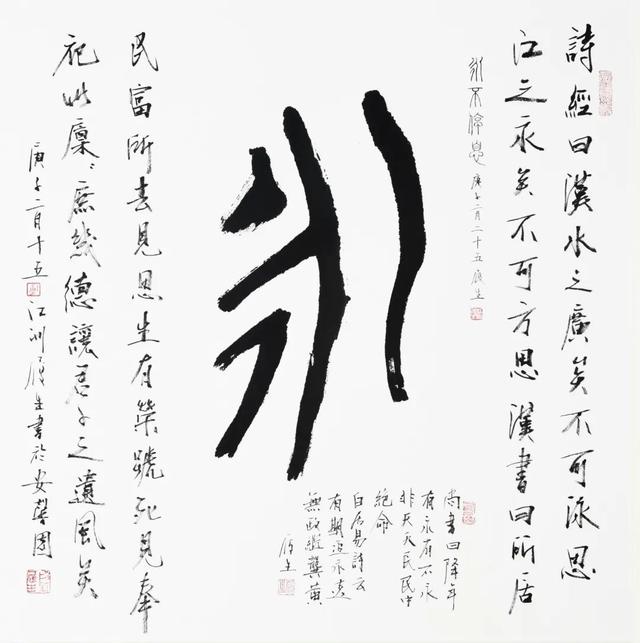 詩經曰漢水之廣矣不可泳思
江之永矣不可方思漢書曰所居
永不停息 庚子二月二十五 履生
永
尚書曰降年
有永有不永
非天夭民民中
絕命
白居易詩云
有期追永遠
無政繼龔黃
履生
民富所去見思生有榮號死見奉
祀此廩〻庶幾德讓君子之遺風矣
庚子二月十五 江洲履生書於安馨園